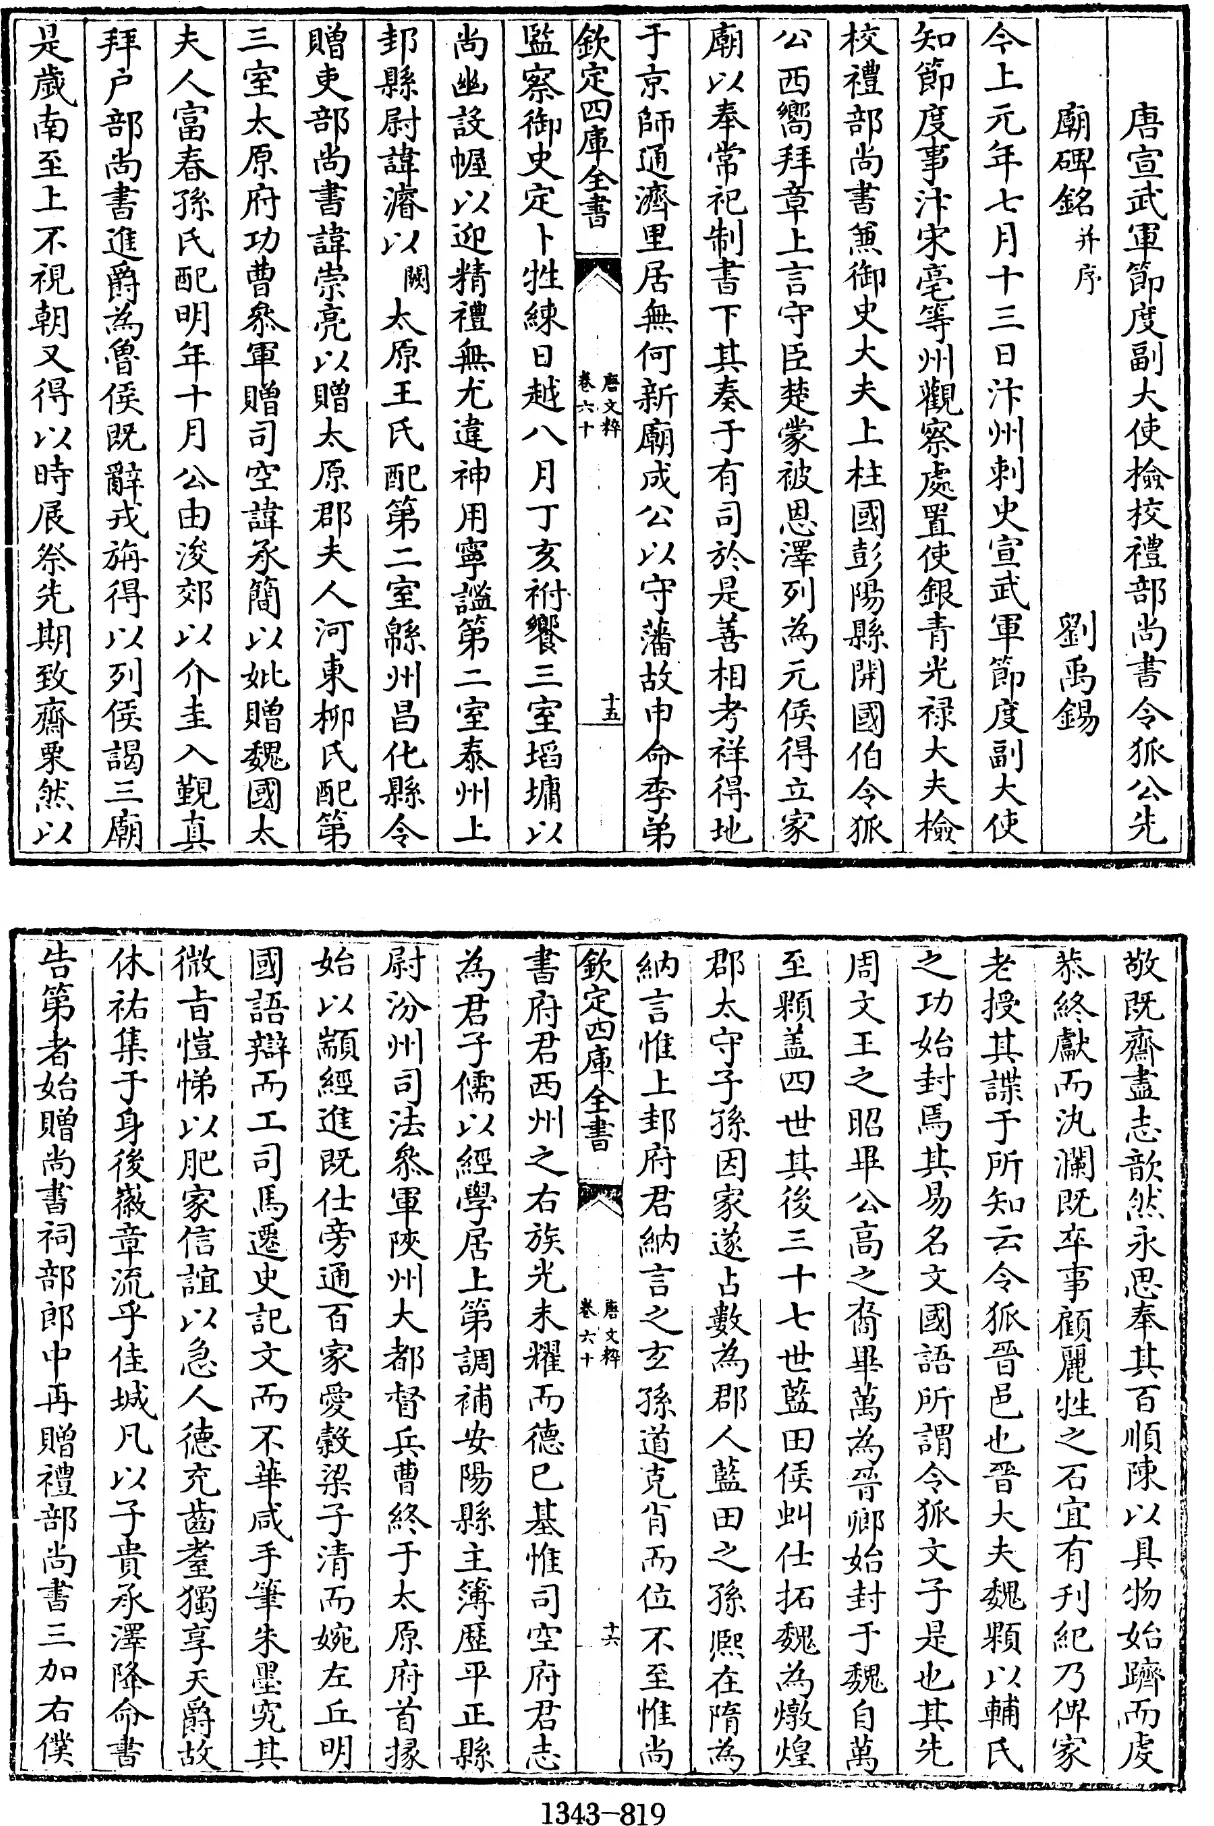 唐宣武軍節度副大使檢校禮部尚書令狐公先
廟碑銘并序 劉禹錫
今上元年七月十三日汴州刺史宣武軍節度副大使
知節度事汴宋亳等州觀察處置使銀青光禄大夫檢
校禮部尚書兼御史大夫上柱國彭陽縣開國伯令狐
公西嚮拜章上言守臣楚蒙被恩澤列為元侯得立家
廟以奉常祀制書下其奏于有司於是善相考祥得地
于京師通濟里居無何新廟成公以守藩故申命季弟
欽定四庫全書 唐文粹 卷六十 十五
監察御史定卜牲練日越八月丁亥祔饗三室塪墉以
尚幽設幄以迎精禮無尤違神用寧謐第二室泰州上
邽縣尉諱濬以闕太原王氏配第二室緜州昌化縣令
贈吏部尚書諱崇亮以贈太原郡夫人河東柳氏配第
三室太原府功曹叅軍贈司空諱承簡以妣贈魏國太
夫人富春孫氏配明年十月公由浚郊以介圭入覲真
拜户部尚書進爵為魯侯既辭戎旃得以列侯謁三廟
是歲南至上不視朝又得以時展祭先期致齋栗然以
敬既齋盡志歆然永思奉其百順陳以具物始躋而虔
恭終獻而汍瀾既卒事顧麗牲之石宜有刋紀乃俾家
老授其諜于所知云令狐晉邑也晉大夫魏顆以輔氏
之功始封焉其易名文國語所謂令狐文子是也其先
周文王之昭畢公高之裔畢萬為晉卿始封于魏自萬
至顆盖四世其後三十七世藍田侯虯仕拓魏為燉煌
郡太守子孫因家遂占數為郡人藍田之孫熈在隋為
納言惟上邽府君納言之玄孫道克肖而位不至惟尚
欽定四庫全書 唐文粹 卷六十 十六
書府君西州之右族光未耀而德已基惟司空府君志
為君子儒以經學居上第調補安陽縣主簿歷平正縣
尉汾州司法叅軍陜州大都督兵曹終于太原府首掾
始以顓經進既仕旁通百家愛穀梁子清而婉左丘明
國語辯而工司馬遷史記文而不華咸手筆朱墨究其
微㫖愷悌以肥家信誼以急人德充齒耋獨享天爵故
休祐集于身後徽章流乎佳城凡以子貴承澤降命書
告第者始贈尚書祠部郎中再贈禮部尚書三加右僕
1343-819